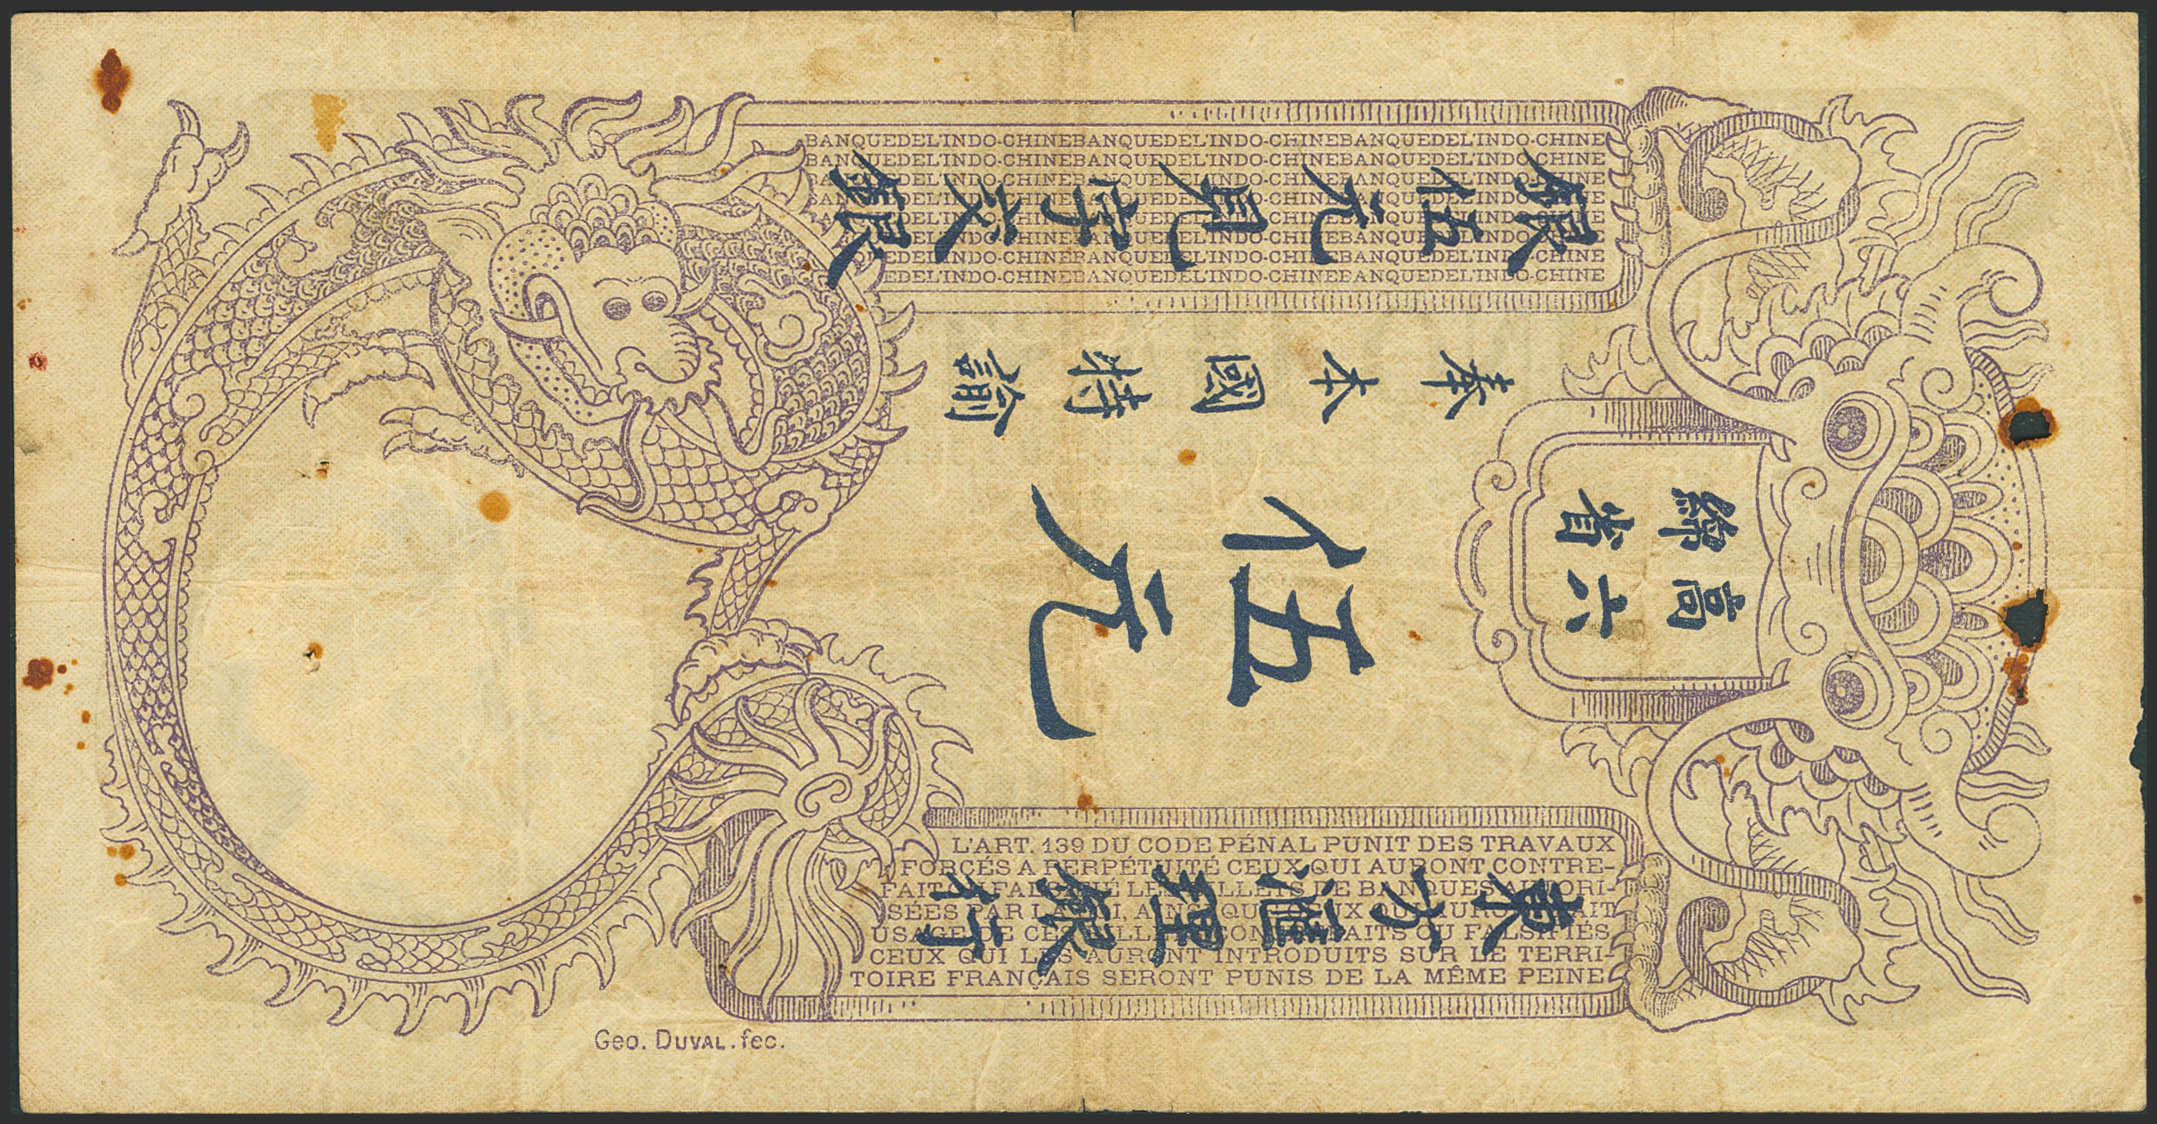 BANQUEDEL'INDO-CHINEBANQUEDEL'INDO-CHINEBANQUEDEL'INDO-CHINE
BANQUEDEL'INDO-CHINEBANQUEDEL'INDO-CHINEBANQUEDEL'INDO-CHINE
BANQUEDEL'INDO-CHINEBANQUEDEL'INDO-CHINEBANQUEDEL'INDO-CHINE
BANQUEDEL'INDO-CHINEBANQUEDEL'INDO-CHINEBANQUEDEL'INDO-CHINE
BANQUEDEL'INDO-CHINEBANQUEDEL'INDO-CHINEBANQUEDEL'INDO-CHINE
BANQUEDEL'INDO-CHINEBANQUEDEL'INDO-CHINEBANQUEDEL'INDO-CHINE
QUEDEL'INDO-CHINEBANQUEDEL'INDO-CHINEBANQUEDEL'INDO-CHINE
QUEDEL'INDO-CHINEBANQUEDEL'INDO-CHINEBANQUEDEL'INDO-CHINE
銀伍元見字交銀
奉本國特諭
高綿
六省
伍元
東方滙理銀行
L'ART. 139 DU CODE PÉNAL PUNIT DES TRAVAUX
FORCÉS A PERPÉTUITÉ CEUX QUI AURONT CONTRE-
FAIT OU FALSIFIÉ LES BILLETS DE BANQUES AUTORI-
SÉES PAR LA LOI, AINSI QUE CEUX QUI AURONT FAIT
USAGE DE CES BILLETS CONTREFAITS OU FALSIFIÉS.
CEUX QUI LES AURONT INTRODUITS SUR LE TERRI-
TOIRE FRANÇAIS SERONT PUNIS DE LA MÊME PEINE
Geo. DUVAL. fec.